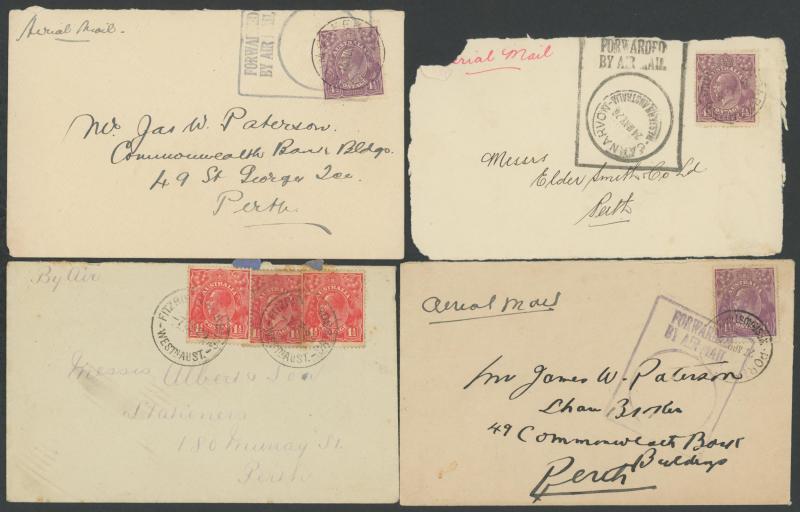 Aerial Mail.
FORWARDED
BY AIR MAIL
AUSTRALIA
Mr Jas W. Paterson.
Commonwealth Bank Bldgs.
49 St Georges Tce.
Perth.
Aerial Mail
FORWARDED
BY AIR MAIL
CARNARVON
WESTERN AUSTRALIA
AUSTRALIA
Messrs
Elder Smith & Co Ld
Perth
By Air
FITZROY
WEST. AUST.
AUSTRALIA
AUSTRALIA
AUSTRALIA
Messrs Albert & Son
Stationers
180 Murray St.
Perth
Aerial Mail
FORWARDED
BY AIR MAIL
AUSTRALIA
Mr James W. Paterson
Share Broker
49 Commonwealth Bank
Buildings
Perth